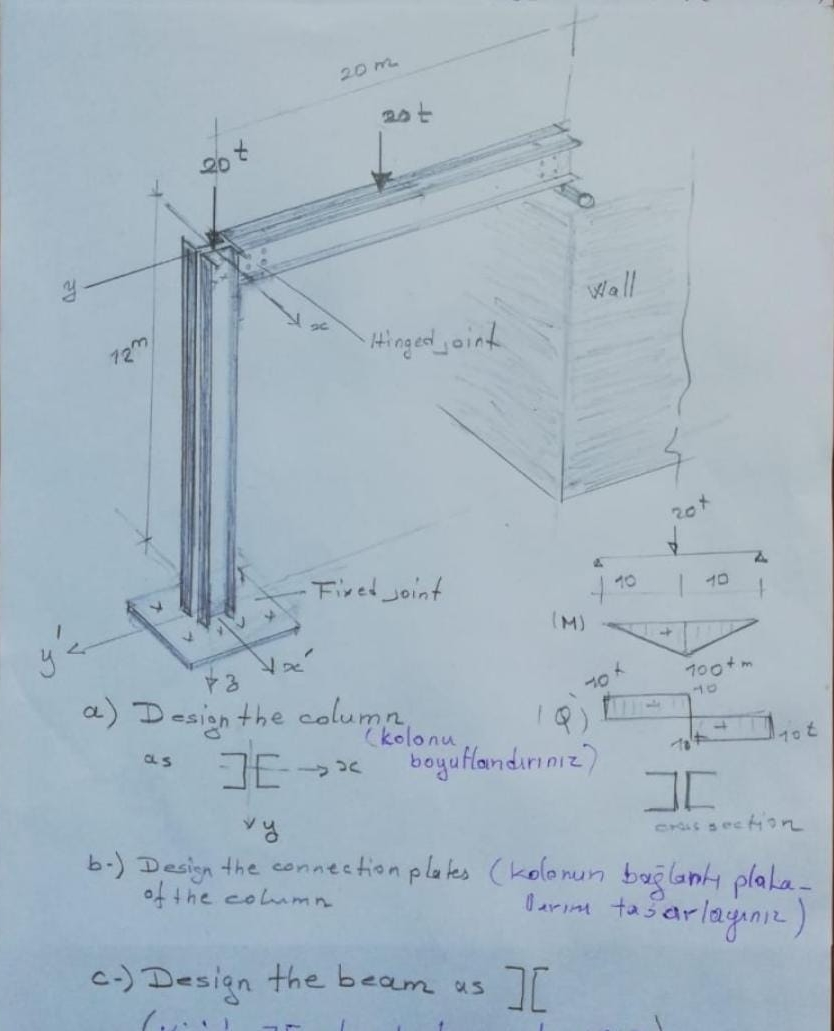 20 m
20 t
20 t
y
x
12 m
Hinged joint
Wall
Fixed joint
y'
x'
z
20 t
10 10
(M)
+
100 tm
10 t
10
(Q)
+
+
10
10 t
cross section
a) Design the column
(kolonu
boyutlandırınız)
as
x
y
b-) Design the connection plates
of the column
(kolonun bağlantı plaka-
larını tasarlayınız)
c-) Design the beam as ][